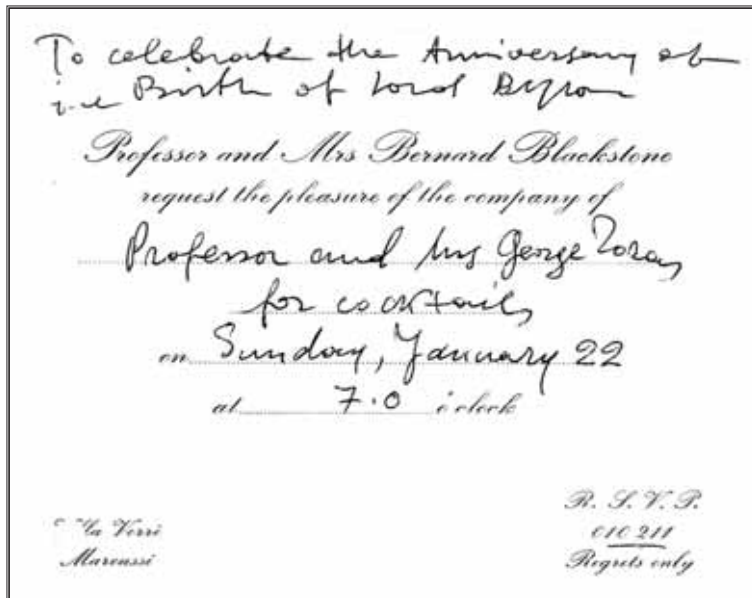 To celebrate the Anniversary of
the Birth of Lord Byron
Professor and Mrs Bernard Blackstone
request the pleasure of the company of
Professor and Mrs George
for cocktails
on Sunday, January 22
at 7.0 o'clock
Maroussi
R. S. V. P.
010 211
Regrets only